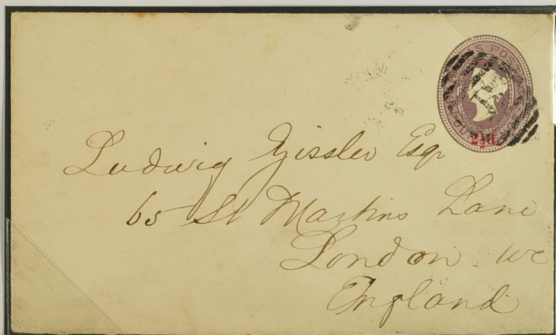 Ludwig Gissler Esqr
65 St Martins Lane
London WC
England